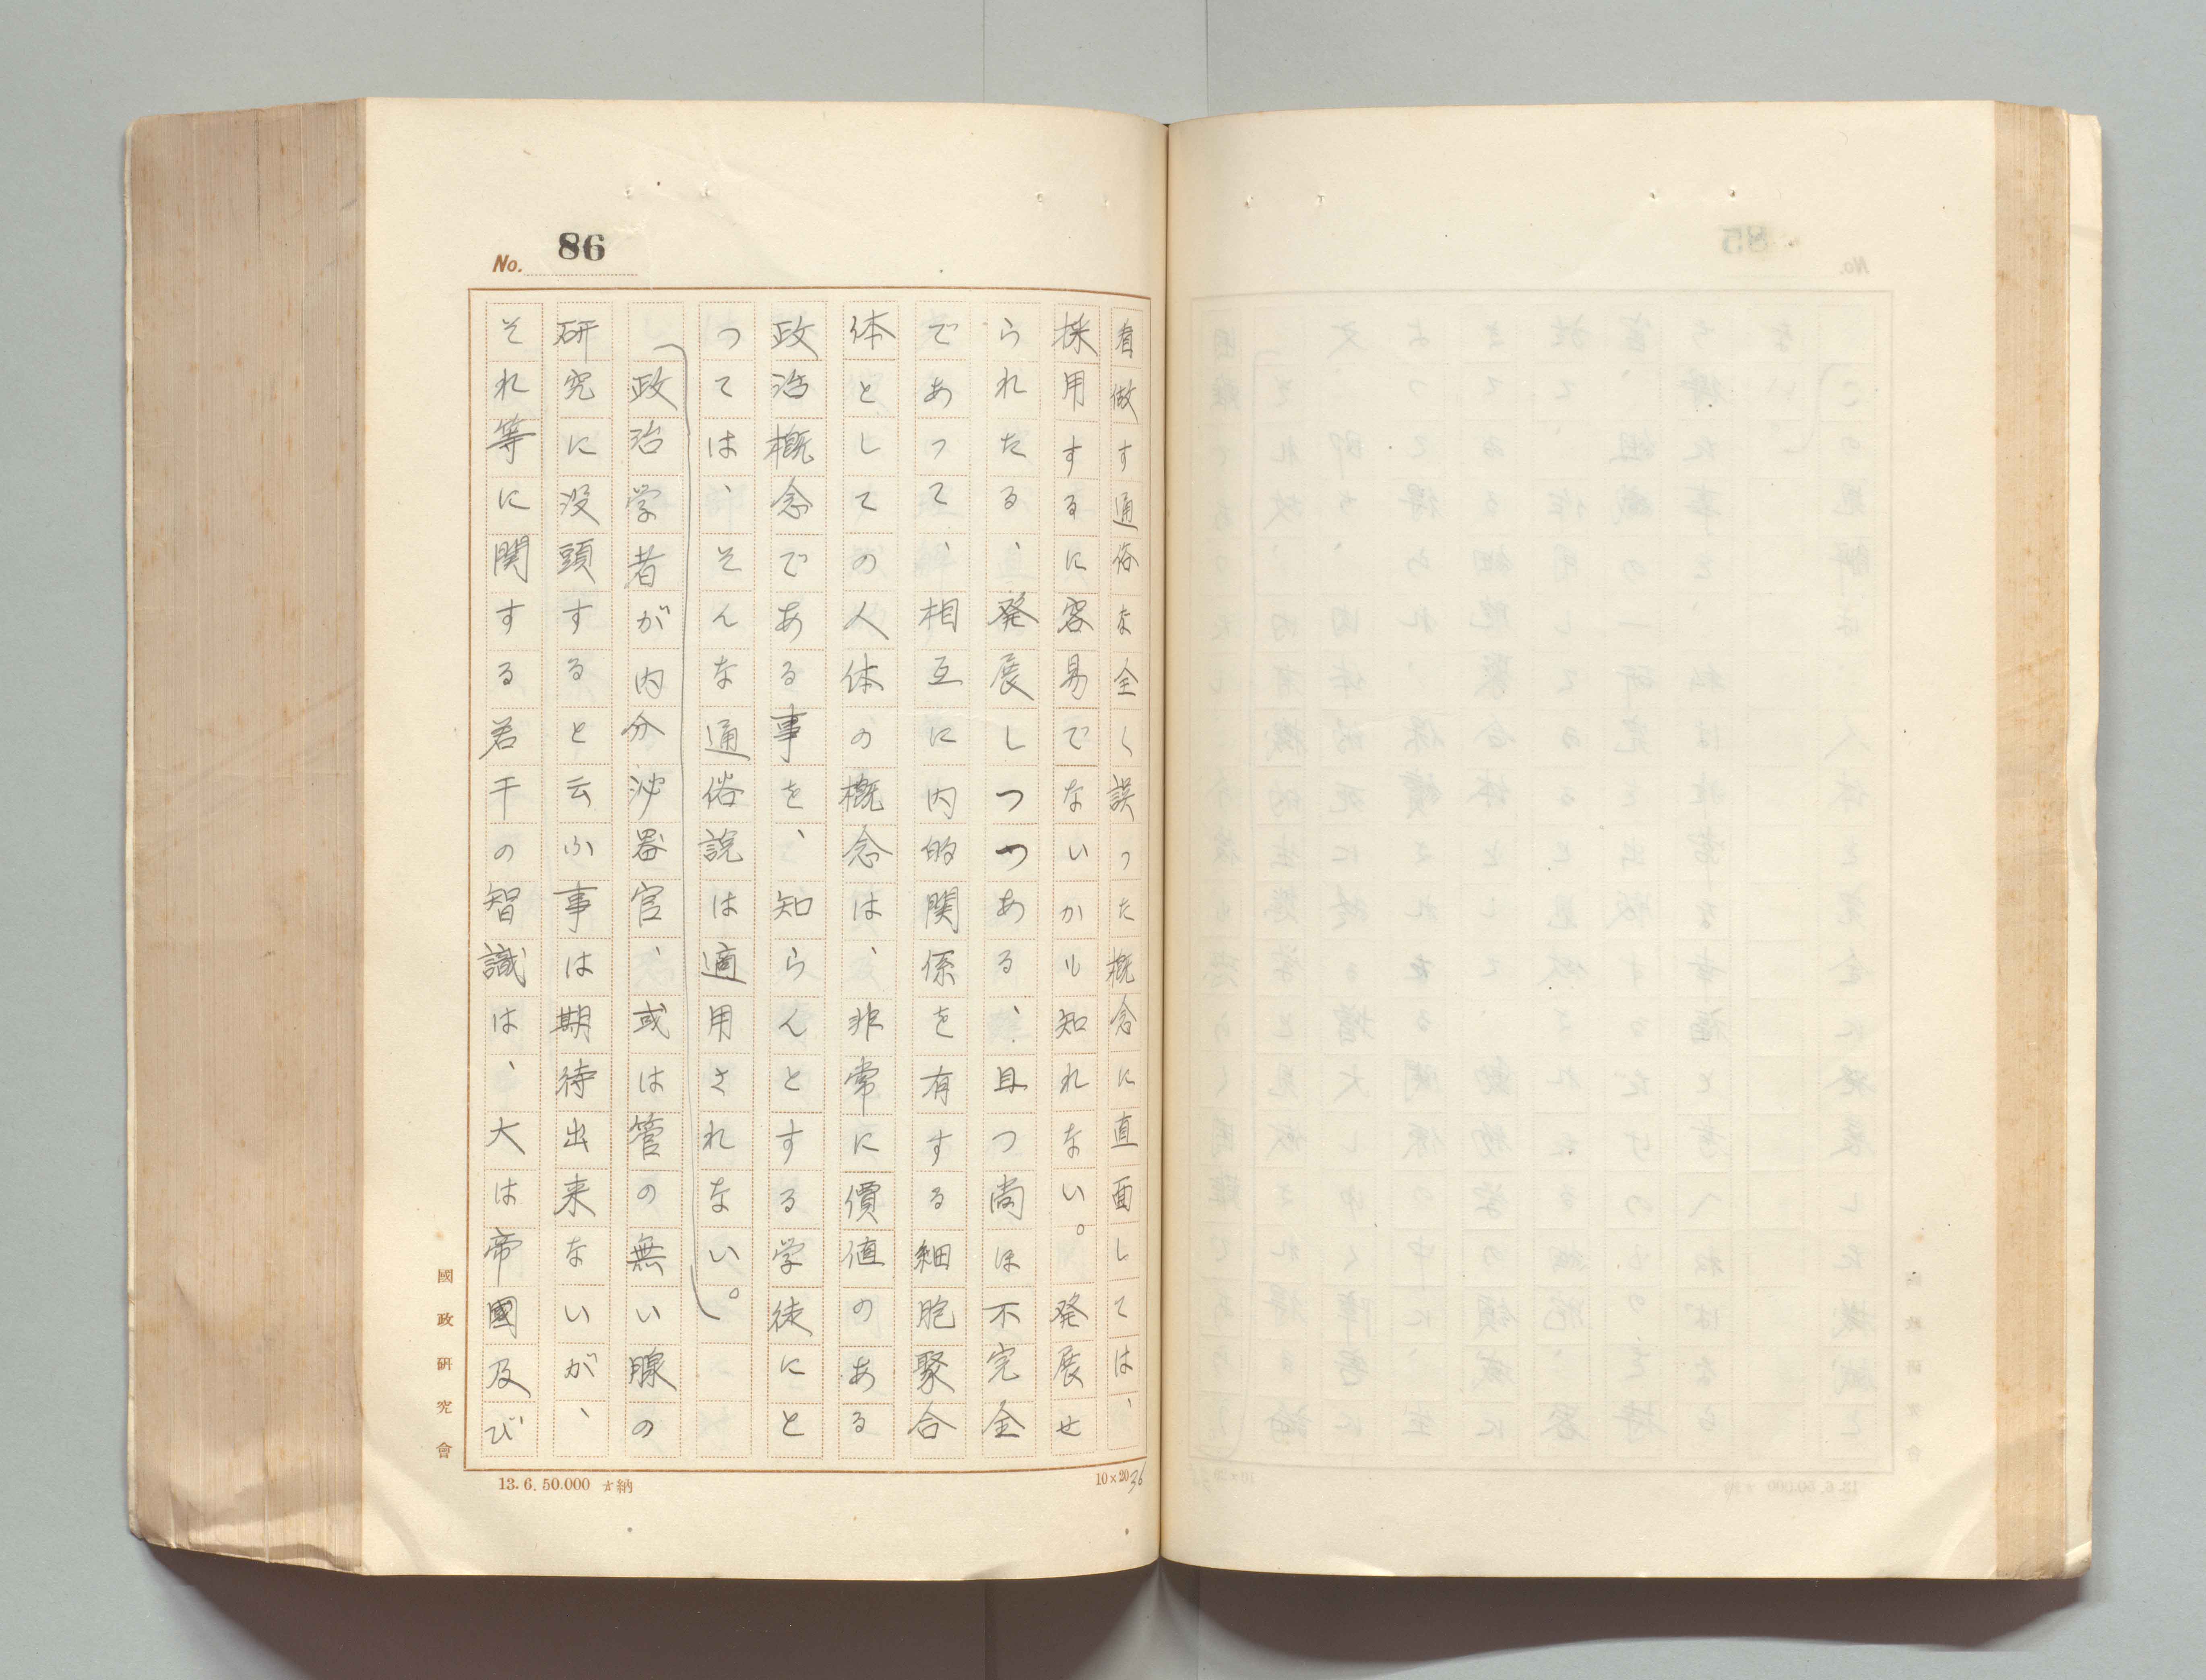 No. 86
看做す通俗な全く誤った概念に直面しては、
採用するに容易でないかも知れない。発展せ
られたる、発展しつつある、且つ尚ほ不完全
であって、相互に内的関係を有する細胞聚合
体としての人体の概念は、非常に價値のある
政治概念である事を、知らんとする学徒にと
つては、そんな通俗説は適用されない。
政治学者が内分泌器官、或は管の無い腺の
研究に没頭すると云ふ事は期待出来ないが、
それ等に関する若干の智識は、大は帝國及び
國政研究會
13.6.50.000 納
10×20
36